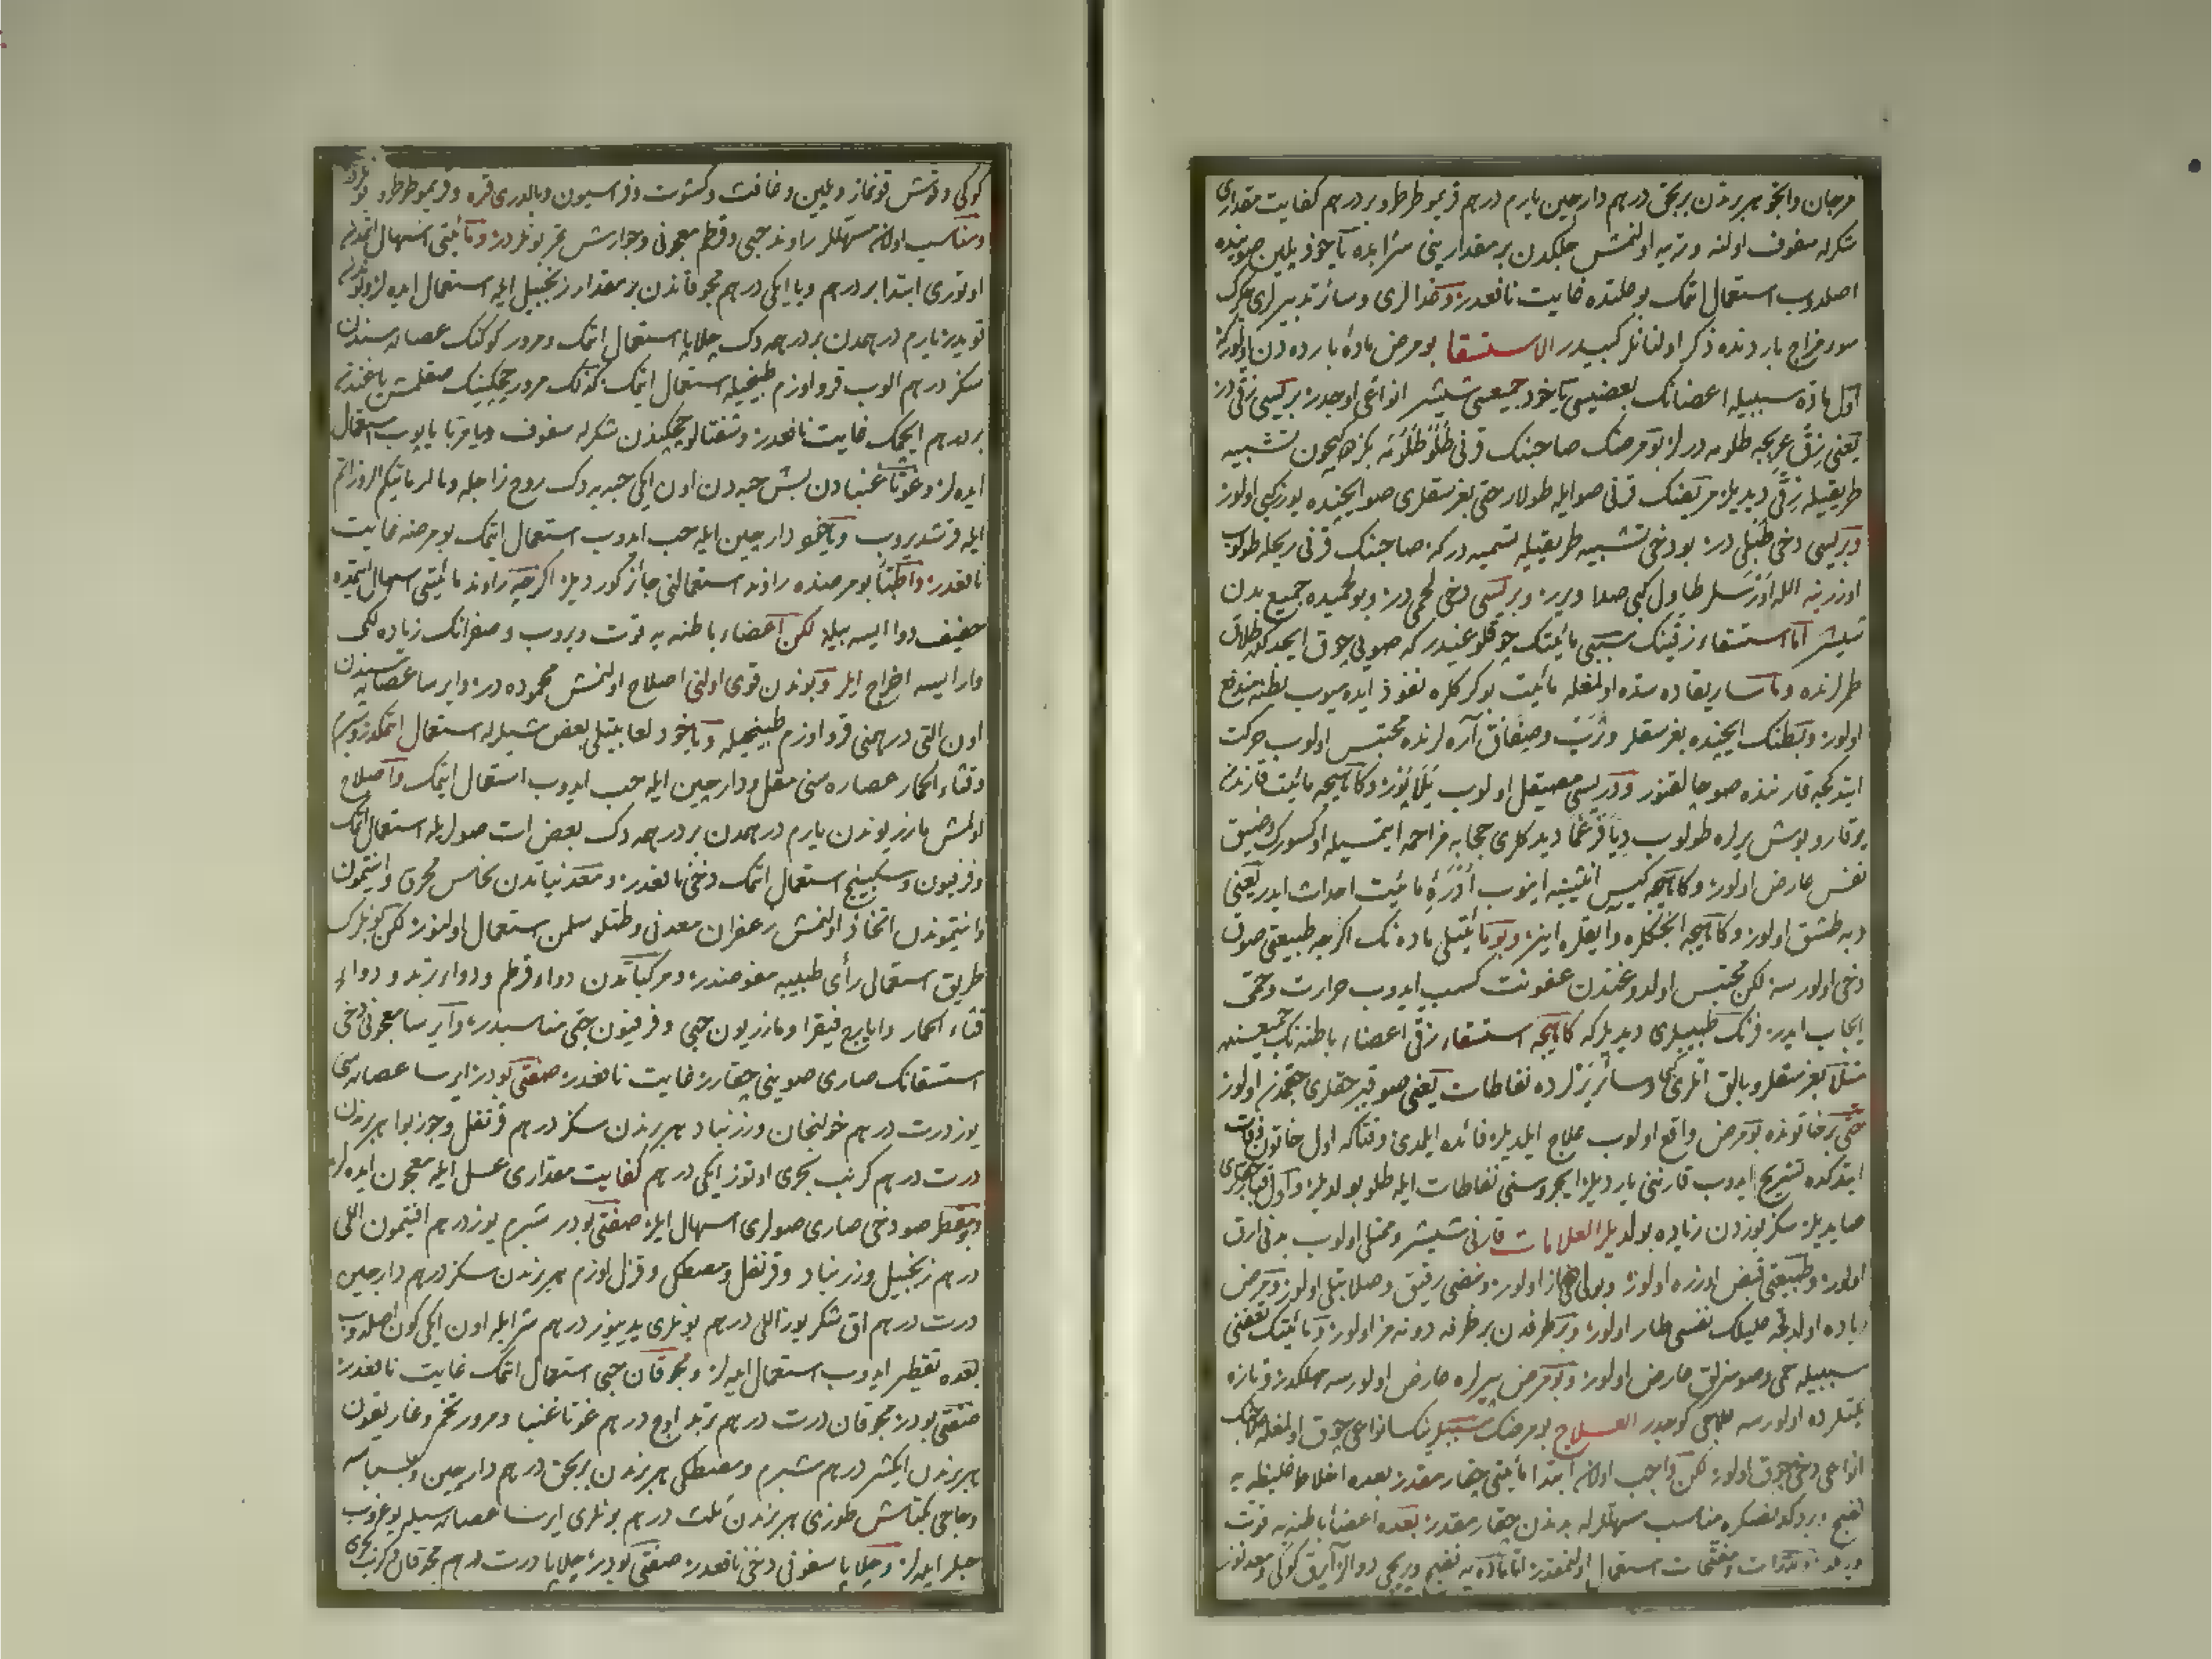 مرجان وانجو هر بردن بر بچق درهم دارچین یارم درهم قریمو طرطرو بر درهم کفایت مقداری
شکرله سفوف اولنه و تربیه اولنمش چلیکدن بر مقدارینی شرابده یاخود یلین صوینده
اصلدوب استعمال اتمک بو علتده غایت نافعدر وغدالری وسائر تدبیرلری
سوء مزاج بارده ذکر اولنانلر کبیدر الاستسقا بو مرض ماده بارده دن اولور که
اول ماده سببیله اعضانک بعضیسی یاخود جمیعسی شیشر انواعی اوچدر بریسی زقی در
یعنی زق عربجه طلومه درلر بو مرضک صاحبنک قرنی طلو طلومه بکزه دیکیچون تشبیه
طریقیله زقی دیدیلر مریضنک قرنی صو ایله طولار حتی بغرسقلری صو ایچنده یوزر کبی اولور
وبریسی دخی طبلی در بو دخی تشبیه طریقیله تسمیه در که صاحبنک قرنی ریحله طولوب
اوزرینه الله اورسلر طاول کبی صدا ویرر وبریسی دخی لحمی در وبو لحمیده جمیع بدن
شیشر اما استسقاء زقینک سببی مائیتک چوقلوغیدر که صویی چوق ایچمکله
طرلرنده وماساریقاده سده اولمغله مائیت بوکرکلره نفوذ ایده میوب بطنه مندفع
اولور وبطنک ایچنده بغرسقلر وثرب وصفاق آره لرنده محتبس اولوب حرکت
ایتدکجه قارننده صو چالقنور ودریسی صیقل اولوب یلاینور وکاهیجه مائیت قارندن
یوقارو بوش یرلره طولوب دیافرغما دیدکلری حجابه مزاحمه ایتمسیله اوکسورک وضیق
نفس عارض اولور وکاهیجه کیس انثیینه اینوب ادره مائیت احداث ایدر یعنی
دبه طشق اولور وکاهیجه انجکلره وایقلره اینر وبو مائیتلی ماده نک اکرچه طبیعتی صوق
دخی اولورسه لکن محتبس اولدوغندن عفونت کسب ایدوب حرارت وحمی
ایجاب ایدر فرنک طبیبلری دیدیلر که کاهیجه استسقاء زقی اعضاء باطنه نک جمیعسنه
مثلا بغرسقلر وبالق اتلری کبی وسائر بزلرده نفاطات یعنی صو قبرجقلری چقمدن اولور
حتی بر خاتونده بو مرض واقع اولوب علاج ایلدیلر فائده ایلمدی وقتاکه اول خاتون وفات
ایتدکده تشریح ایدوب قارننی یاردیلر ایچروسنی نفاطات ایله طلو بولدیلر واول
صایدیلر سکز یوزدن زیاده بولدیلر العلامات قارنی شیشر وممتلی اولوب بدنی ارق
اولور وطبیعتی قبض اوزره اولور وبولی از اولور ونبضی رقیق وصلابتلی اولور ومرض
زیاده اولدقجه علیلک نفسی طار اولور وبر طرفدن بر طرفه دونه مز اولور ومائیتک تعفنی
سببیله حمی وصوسزلق عارض اولور وبو مرض پیرلره عارض اولورسه مهلکدر وتازه
یکتلرده اولورسه علاجی کوجدر العلاج بو مرضک سببلرینک انواعی چوق اولمغله علاجنک
انواعی دخی چوق اولور لکن واجب اولان ابتدا مائیتی چقارمقدر بعده اخلاط غلیظه یه
نضج ویردکدنصکره مناسب مسهللرله بدندن چقارمقدر بعده اعضاء باطنیه یه قوت
ویرمکدر مدرات ومفتحات استعمال اولنمقدر اما ماده یه نضج ویریجی دوالر آیرق کوکی ومعدنوز
کوکی وقوش قونماز ویلین وغافث وکشوت وفراسیون وبالدری قره وقریمو طرطرو
ومناسب اولان مسهللر راوند حبی وقرطم معجونی وجوارش تمر بونلردر ومائیتی اسهال اتمدن
اوتوری ابتدا بر درهم ویا ایکی درهم مجوقاندن بر مقدار زنجبیل ایله استعمال ایده لر
قویدر یارم درهمدن بر درهمه دک جلاپا استعمال اتمک ومرور کوکنک عصاره سندن
سکز درهم الوب قرو اوزم طبیخیله استعمال اتمک کذلک مرور چیچکینک
بر درهم ایچمک غایت نافعدر وشفتالو چیچکیندن شکرله سفوف ویا مربا یاپوب استعمال
ایده لر وغوتا غنبادن بش حبه دن اون ایکی حبه یه دک روح زاجله ومالر
ایله قرشدیروب ویاخود دارچین ایله حب ایدوب استعمال اتمک بو مرضه غایت
نافعدر واطبا بو مرضده راوند استعمالنی جائز کوردیلر اکرچه راوند مائیتی اسهال ایتمده
خفیف دوا ایسه بیله لکن اعضاء باطنه یه قوت ویروب وصفرانک زیاده لکی
وار ایسه اخراج ایلر وبوندن قوی اولنی اصلاح اولنمش محموده در وایرسا عصاره سندن
اون التی درهمنی قرو اوزم طبیخیله ویاخود لعابیتلی بعض شیلرله استعمال اتمکدر وشبرم
وقثاء الحمار عصاره سنی مقل ودارچین ایله حب ایدوب استعمال ایتمک واصلاح
اولمش مازریوندن یارم درهمدن بر درهمه دک بعض ات صولریله استعمال اتمک
وفرفیون وسکبینج استعمال اتمک دخی نافعدر ومعدنیاتدن نحاس محرق وانتیمون
وانتیموندن اتخاذ اولنمش زعفران معدنی وطتلو سلمن استعمال اولنور لکن بونلرک
طریق استعمالی رأی طبیبه مفوضدر ومرکباتدن دواء قرطم ودواء تربد ودواء
قثاء الحمار وایارج فیقرا ومازریون حبی وفرفیون حبی مناسبدر وایرسا معجونی دخی
استسقانک صاری صوینی چقارر غایت نافعدر صفتی بودر ایرسا عصاره سی
یوز درت درهم خولنجان وزرنباد هر بردن سکز درهم قرنفل وجوز بوا هر بردن
درت درهم کرنب بحری اوتوز ایکی درهم کفایت مقداری عسل ایله معجون ایده لر
وبو مقطر صو دخی صاری صولری اسهال ایلر صفتی بودر شبرم یوز درهم افتیمون اللی
درهم زنجبیل وزرنباد وقرنفل ومصطکی وقزل اوزم هر بردن سکز درهم دارچین
درت درهم اق شکر یوز اللی درهم بونلری یدییوز درهم شرابله اون ایکی کون اصلدوب
بعده تقطیر ایدوب استعمال ایده لر ومجوقان حبی استعمال اتمک غایت نافعدر
صفتی بودر مجوقان درت درهم تربد اوچ درهم غوتا غنبا ومرور تخمی وغاریقون
هر بردن ایکیشر درهم شبرم ومصطکی هر بردن بر بچق درهم دارچین وبسباسه
وحاجی بکتاش طوزی هر بردن ثلث درهم بونلری ایرسا عصاره سیله یوغروب
حبلر ایده لر وجلاپا سفوفی دخی نافعدر صفتی بودر جلاپا درت درهم مجوقان وکرنب بحری